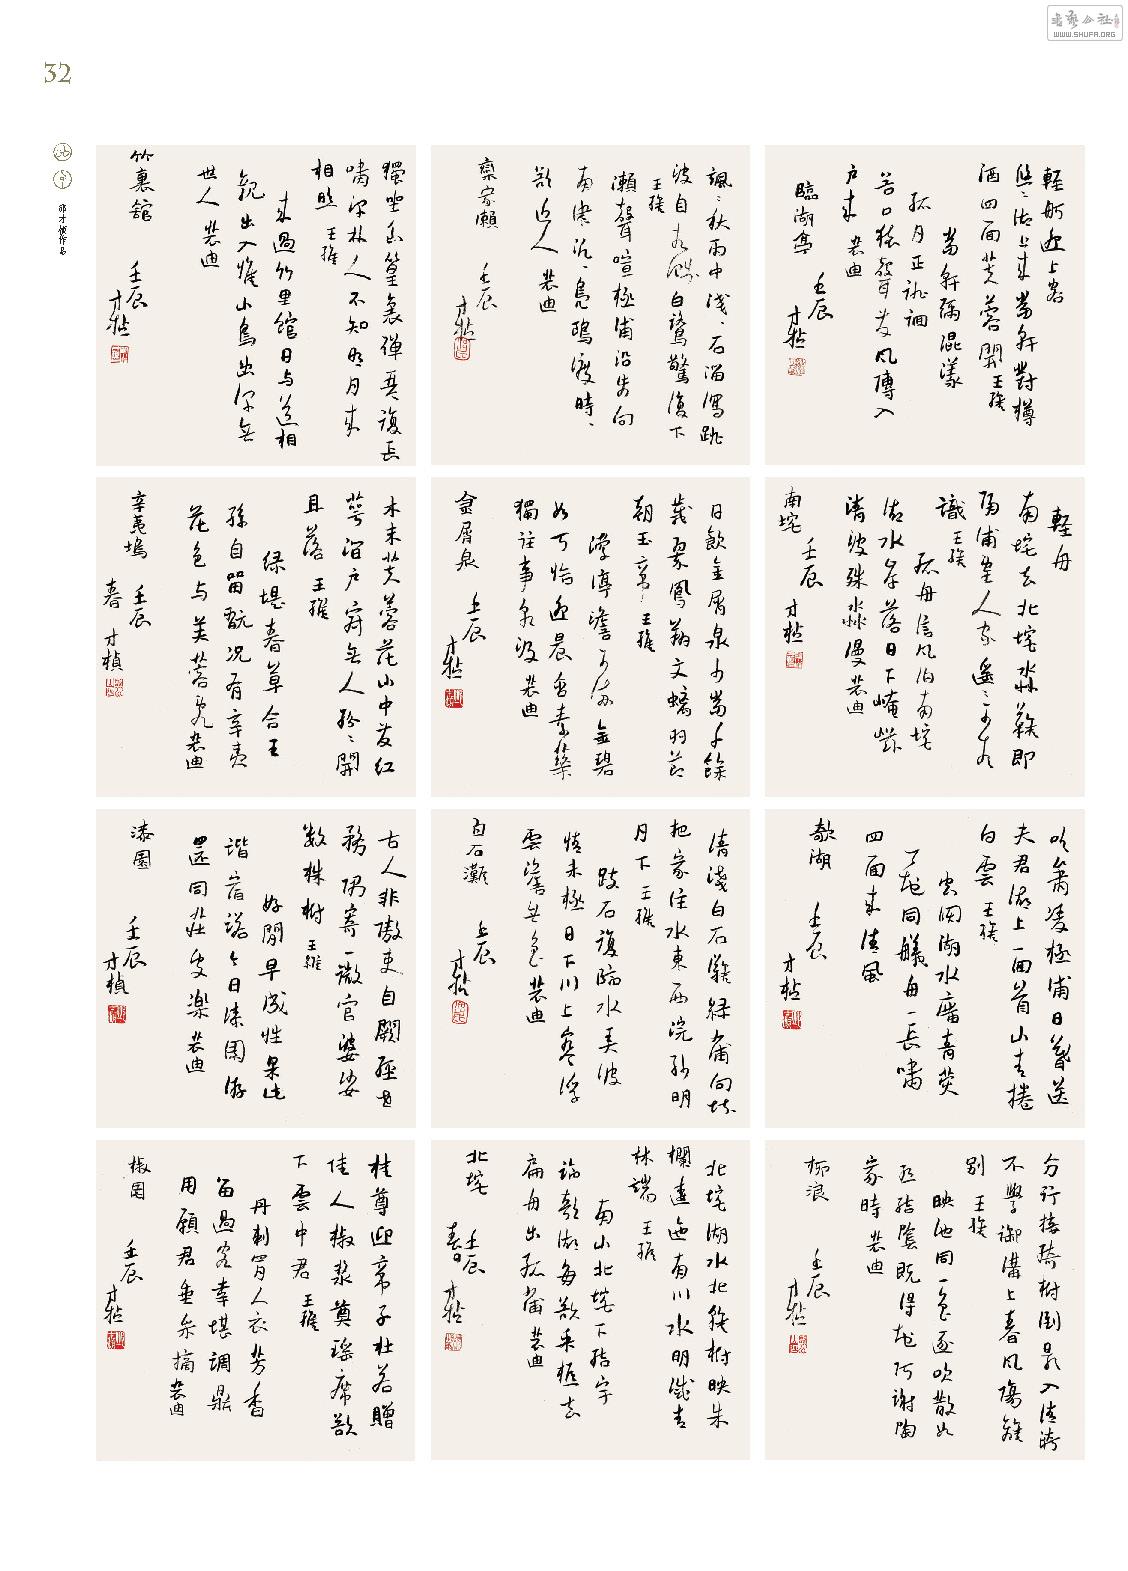 书艺公社
WWW.SHUFA.ORG
32
輕舸迎上客
悠悠湖上來當軒對樽
酒四面芙蓉開王維
當軒彌滉漾
孤月正裴回
谷口猿聲發風傳入
戶來 裴迪
臨湖亭
壬辰
才楨
颯颯秋雨中淺淺石溜瀉跳
波自相濺白鷺驚復下
王維
瀨聲喧極浦沿步向
南津汎汎鳧鷗渡時時
欲近人 裴迪
欒家瀨
壬辰
才楨
獨坐幽篁裏彈琴復長
嘯深林人不知明月來
相照 王維
來過竹里館日与道相
親出入惟山鳥幽深無
世人 裴迪
竹裏館
壬辰
才楨
輕舟
南垞去北垞淼難即
隔浦望人家遙遙不相
識王維
孤舟信風泊南垞
湖水岸落日下崦嵫
清波殊淼漫裴迪
南垞
壬辰
才楨
日飲金屑泉少當千餘
歲翠鳳翔文螭羽節
朝玉帝 王維
瀠渟澹不流金碧
如可拾迎晨含素華
獨往事朝汲 裴迪
金屑泉
壬辰
才楨
木末芙蓉花山中發紅
萼澗戶寂無人紛紛開
且落 王維
綠堤春草合王
孫自留翫況有辛夷
花色与芙蓉亂裴迪
辛夷塢
壬辰
春 才楨
吹簫凌極浦日暮送
夫君湖上一回首山青捲
白雲 王維
空闊湖水廣青熒
天色同艤舟一長嘯
四面來清風
欹湖
壬辰
才楨
清淺白石灘綠蒲向堪
把家住水東西浣紗明
月下 王維
跂石復臨水弄波
情未極日下川上寒浮
雲澹無色裴迪
白石灘
壬辰
才楨
古人非傲吏自闕經世
務偶寄一微官婆娑
數株樹 王維
好閒早成性果此
諧宿諾今日漆園游
還同莊叟樂裴迪
漆園
壬辰
才楨
分行接綺樹倒影入清漪
不學御溝上春風傷離
別 王維
映池同一色逐吹散如
絲結陰既得地何謝陶
家時 裴迪
柳浪
壬辰
才楨
北垞湖水北雜樹映朱
欄逶迤南川水明滅青
林端 王維
南山北垞下結宇
臨欹湖每欲采樵去
扁舟出孤蒲 裴迪
北垞
壬辰
春日 才楨
桂尊迎帝子杜若贈
佳人椒漿奠瑤席欲
下雲中君 王維
丹刺罥人衣芳香
留過客幸堪調鼎
用願君垂采摘裴迪
椒園
壬辰
才楨